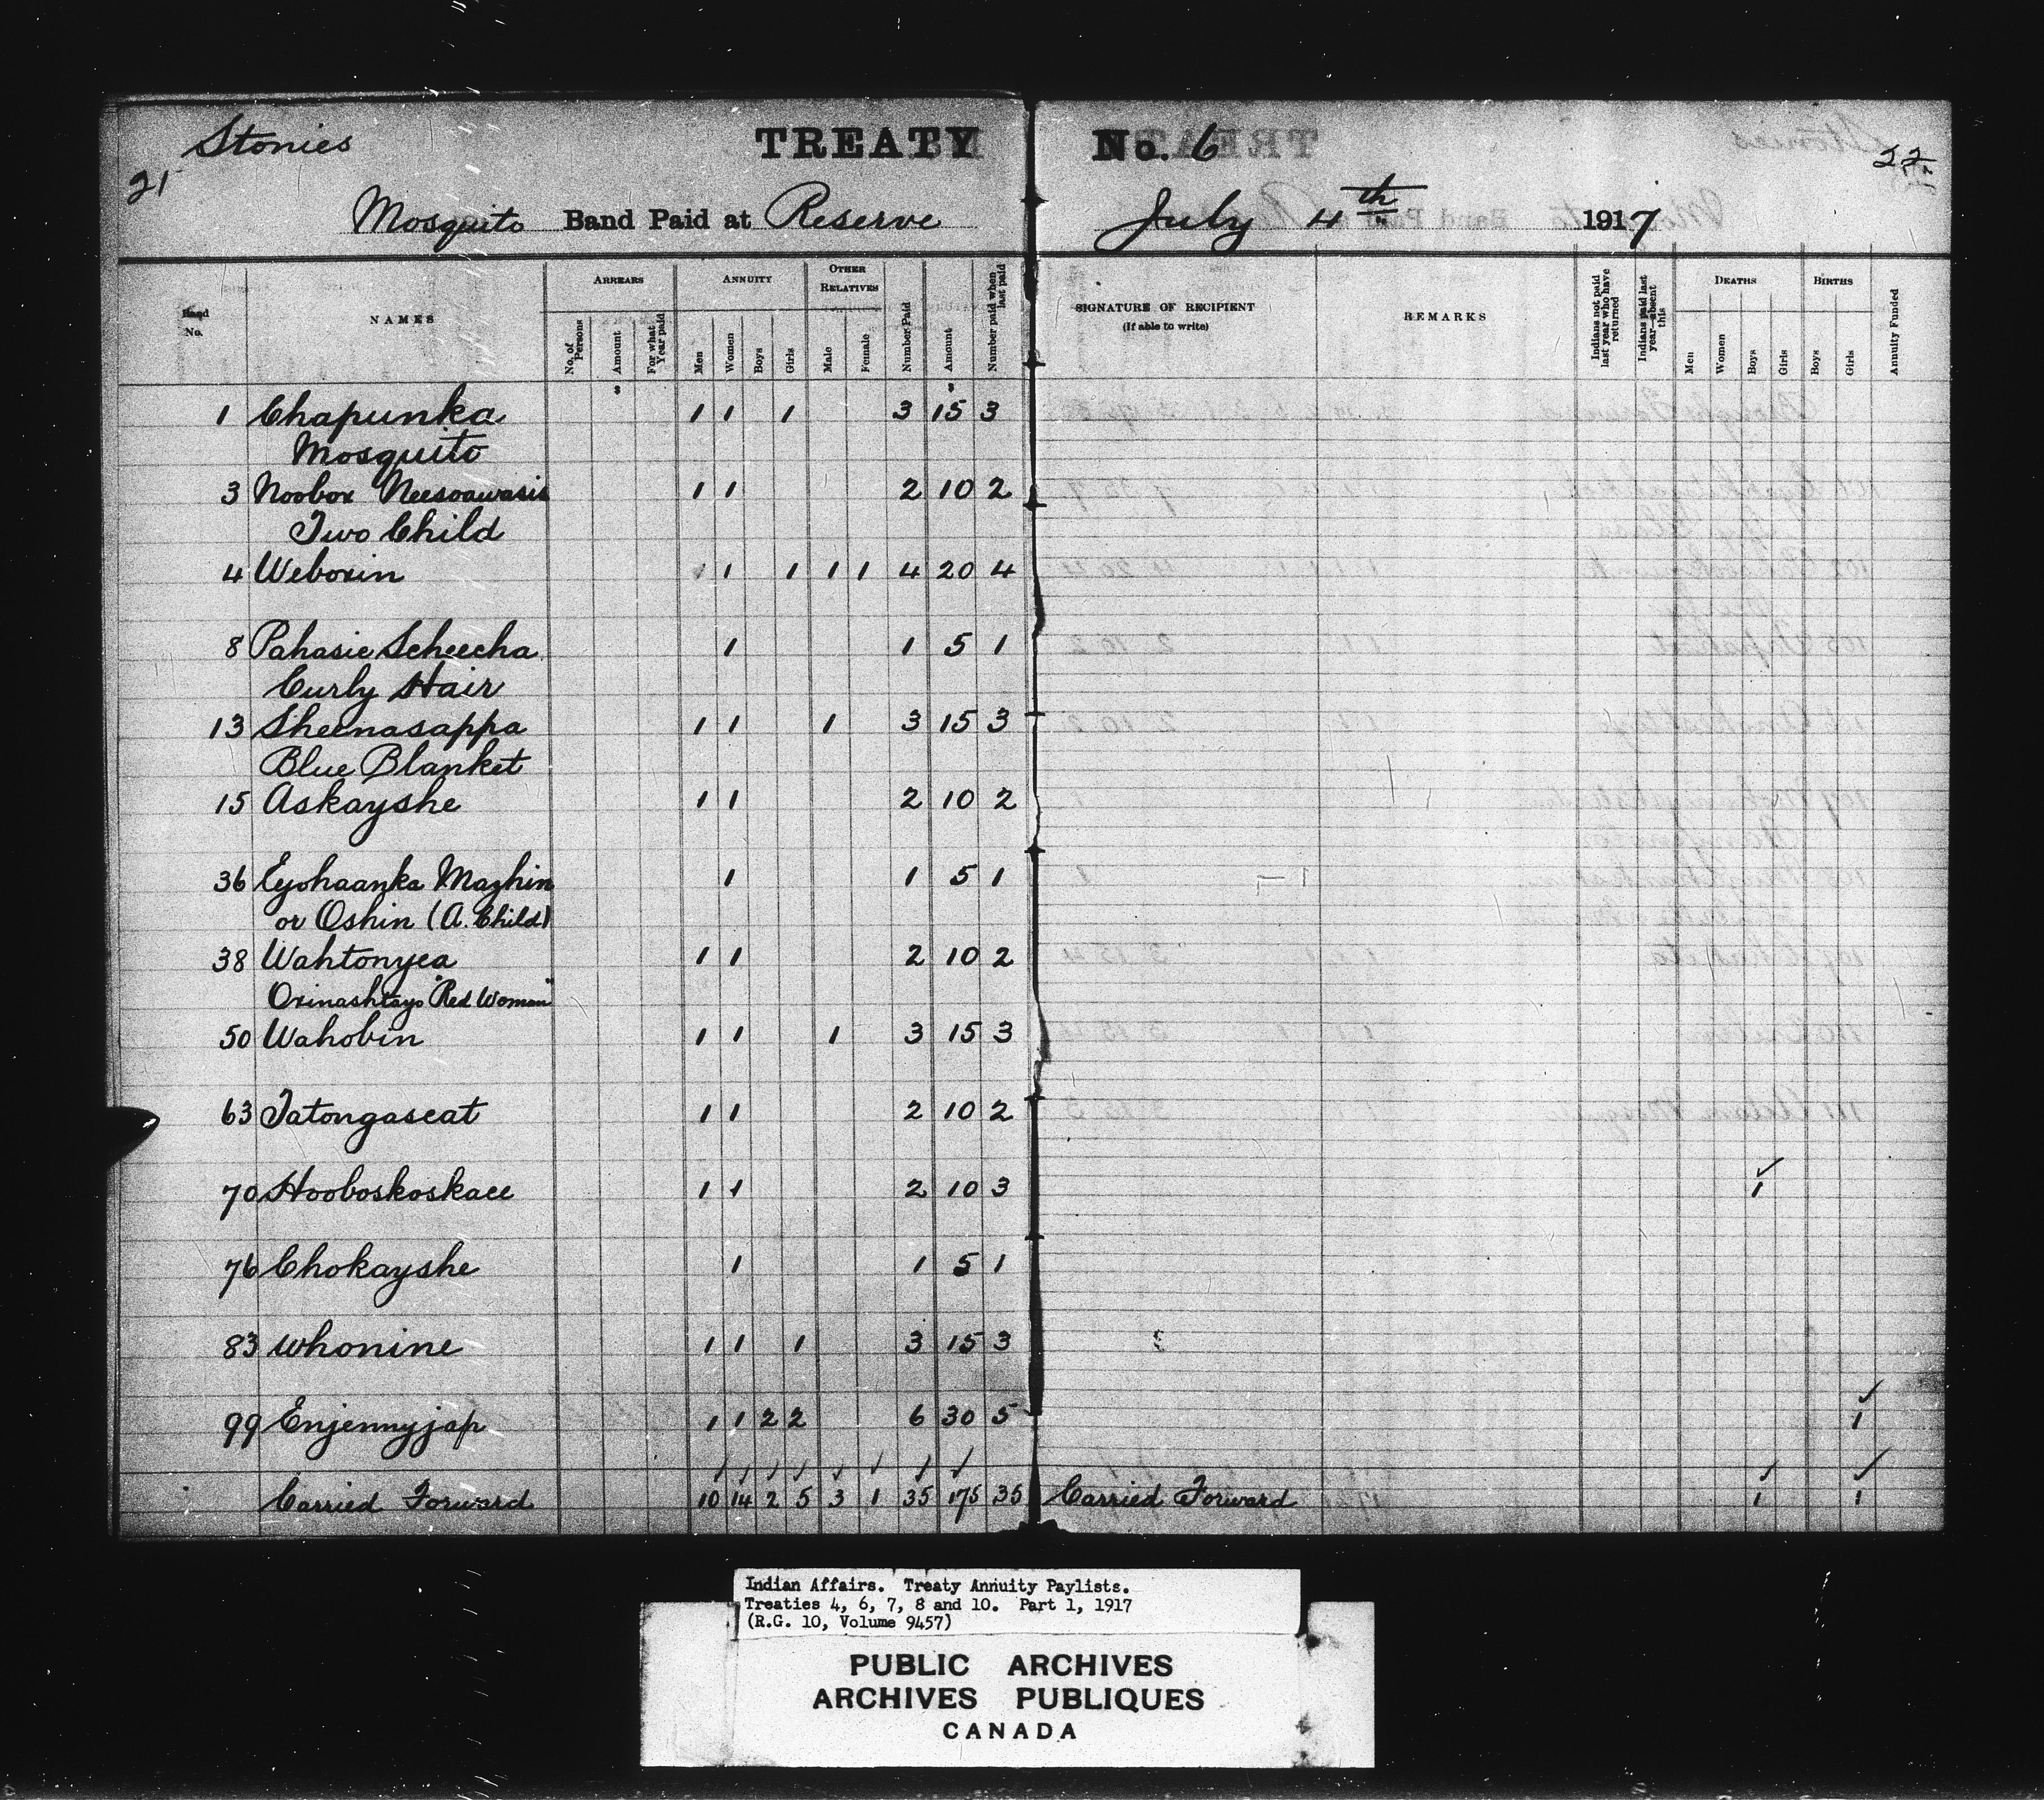 Stonies TREATY No. 6
21 22
Mosquito Band Paid at Reserve July 4th 1917
Band No. NAMES ARREARS ANNUITY OTHER RELATIVES Number Paid Amount Number paid when last paid SIGNATURE OF RECIPIENT (If able to write) REMARKS Indians not paid last year who have returned Indians paid last year—absent this DEATHS BIRTHS Annuity Funded
No. of Persons Amount For what Year paid Men Women Boys Girls Male Female Men Women Boys Girls Boys Girls
$ $
1 Chapunka 1 1 1 3 15 3
Mosquito
3 Noobox Neesoawasis 1 1 2 10 2
Two Child
4 Weboxin 1 1 1 1 4 20 4
8 Pahasie Scheecha 1 1 5 1
Curly Hair
13 Sheenasappa 1 1 1 3 15 3
Blue Blanket
15 Askayshe 1 1 2 10 2
36 Eyohaanka Mazhin 1 1 5 1
or Oshin (A. Child)
38 Wahtonyea 1 1 2 10 2
Oxinashtayo "Red Woman"
50 Wahobin 1 1 1 3 15 3
63 Tatongaseat 1 1 2 10 2
70 Hooboskoskace 1 1 2 10 3 ✓ 1
76 Chokayshe 1 1 5 1
83 Whonine 1 1 1 3 15 3
99 Enjennyjap 1 1 2 2 6 30 5 ✓ 1
✓ ✓ ✓ ✓ ✓ ✓ ✓ ✓ ✓ ✓
Carried Forward 10 14 2 5 3 1 35 175 35 Carried Forward 1 1
Indian Affairs. Treaty Annuity Paylists.
Treaties 4, 6, 7, 8 and 10. Part 1, 1917
(R.G. 10, Volume 9457)
PUBLIC ARCHIVES
ARCHIVES PUBLIQUES
CANADA